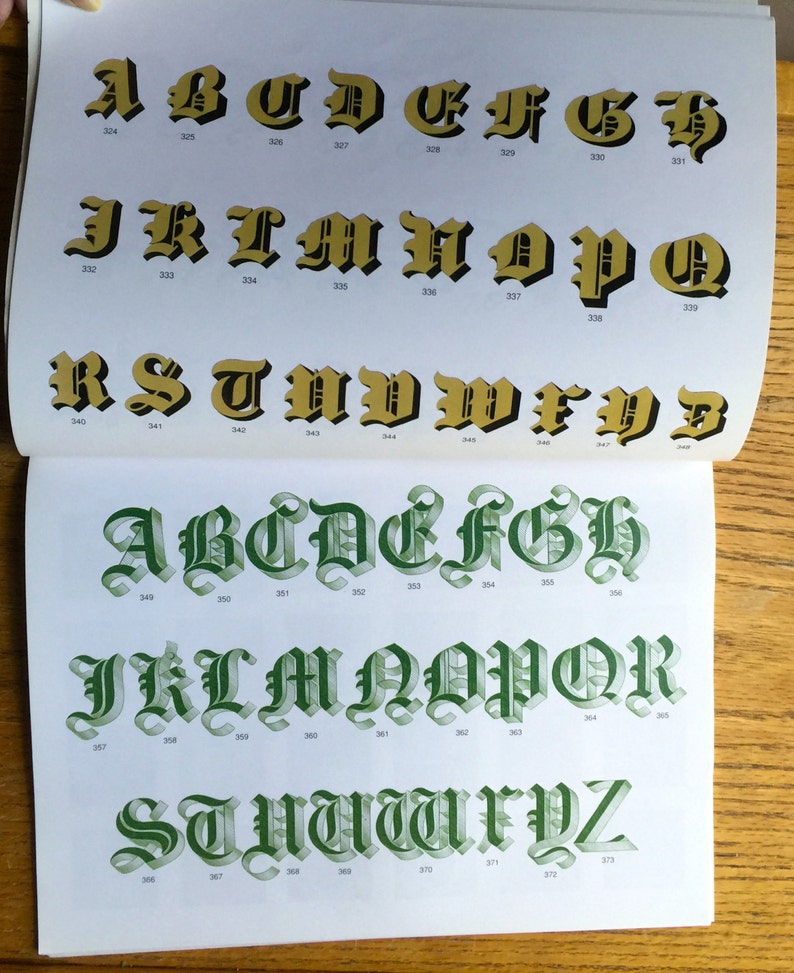 A B C D E F G H
324 325 326 327 328 329 330 331
J K L M N O P Q
332 333 334 335 336 337 338 339
R S T U V W X Y Z
340 341 342 343 344 345 346 347 348
A B C D E F G H
349 350 351 352 353 354 355 356
J K L M N O P Q R
357 358 359 360 361 362 363 364 365
S T U V W X Y Z
366 367 368 369 370 371 372 373